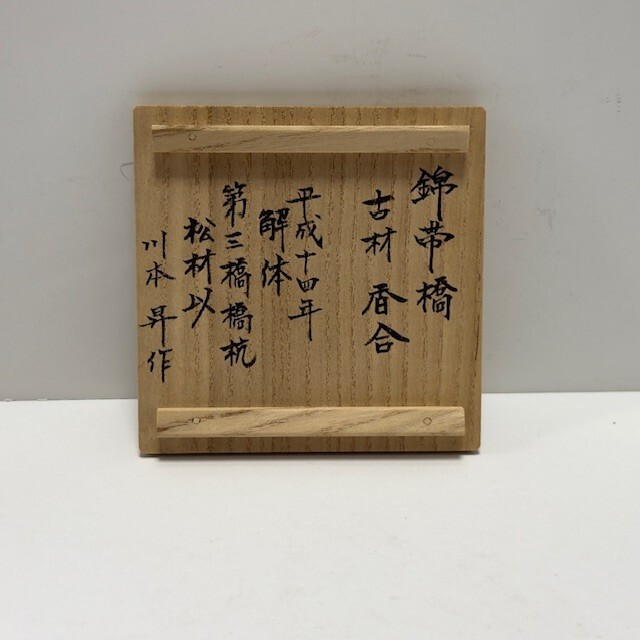 錦帯橋
古材 香合
平成十四年
解体
第三橋橋杭
松材以
川本昇作